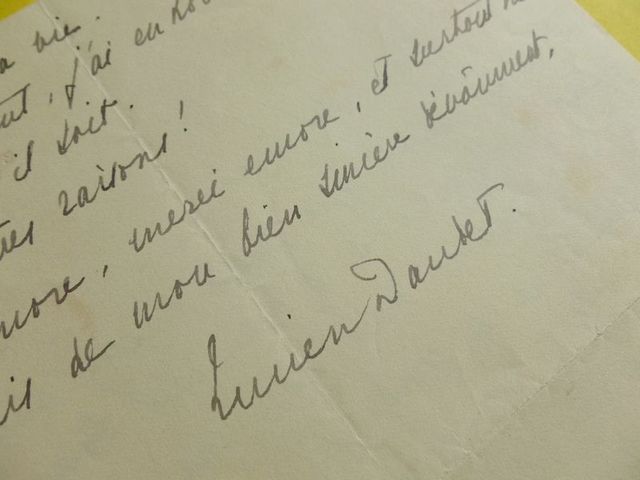 vie.
j'ai eu
il soit.
raisons!
merci encore, et surtout
de mon bien sincère dévoûment,
Lucien Daudet.